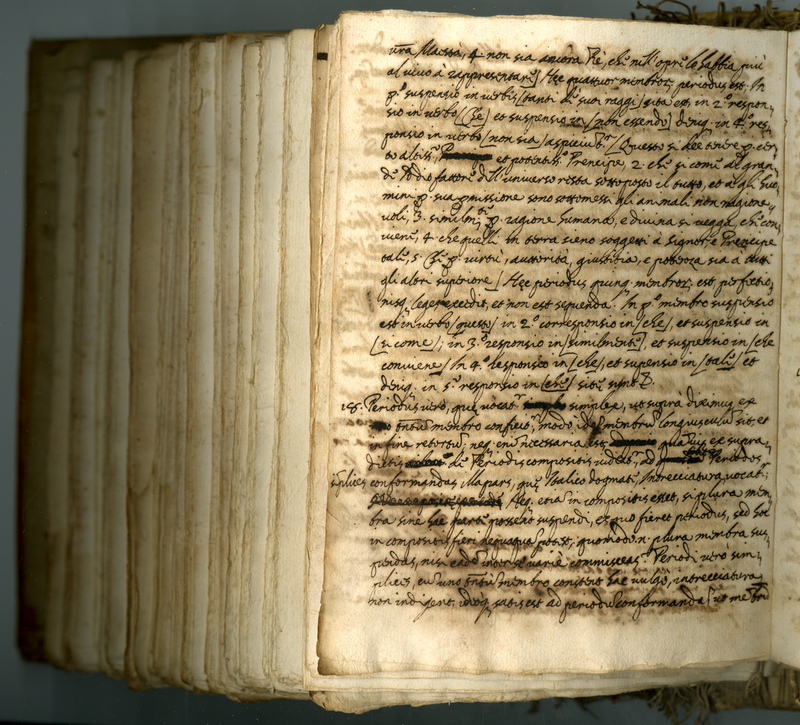 ura Maesta, 4. non sia ancora Rè, che nell'opre lo habbia più
al vivo à rappresentare] Hęc quattuor membror. periodus est. In
p.º suspensio in verbis [tanti de suoi raggi] sita est, in 2.º respon-
sio in verbo [Che] et suspensio in [non essendo] deniq. in 4.º res-
ponsio in verbo [non sia] aspicitur. [Questo si dee tenere p. cer-
to altiss.º et potentiss.º Prencipe, 2. che si come al gran
de Iddio fattore dell'universo resta sottoposto il tutto, et a gli huo-
mini p. sua pmissione sono sottomessi gli animali non ragione-
voli, 3. similm.te p. ragione humana, e divina si vegga, che con
viene, 4. che quelli in terra sieno soggetti à Signor e Prencipe
tale, 5. che p. virtù, auttorità, giustitia, e potenza sia a tutti
gli altri superiore] Hęc periodus quinq. membror. est, perfectio-
nisq. leges excedit, et non est sequenda. In p.º membro suspensio
est in verbo [questo] in 2.º corresponsio in [che], et suspensio in
[si come]; in 3.º responsio in [similmente], et suspensio in [che
conviene] In 4.º responsio in [che], et supensio in [tale] et
deniq. in 5.º responsio in [che] sitę sunt.
18. Periodus vero, quę vocat.r simplex, ut suprà diximus ex
uno tantũ membro conficit.r, modo id membrũ longiusculũ sit, et
in fine retortũ; neq. enĩ necessaria est, ex supra-
dictis de Periodis compositis videt.r, ad Periodos
simplices conformandas illa pars, quę Italico dogmate Intrecciatura vocat.r;
Neq. etiã in compositis esset, si plura mem-
bra sine hac parte possent suspendi, ex quo fieret periodus, sed hoc
in compositis fieri nequaquã potest, quomodo n. plura membra sus-
pendas, nisi eadẽ inter se variè commisceas? Periodi vero sim-
plices, cũ uno tantũ membro constent hac vulgò, intrecciatura
non indigent, ideoq. satis est ad periodũ conformandã [ut membrũ